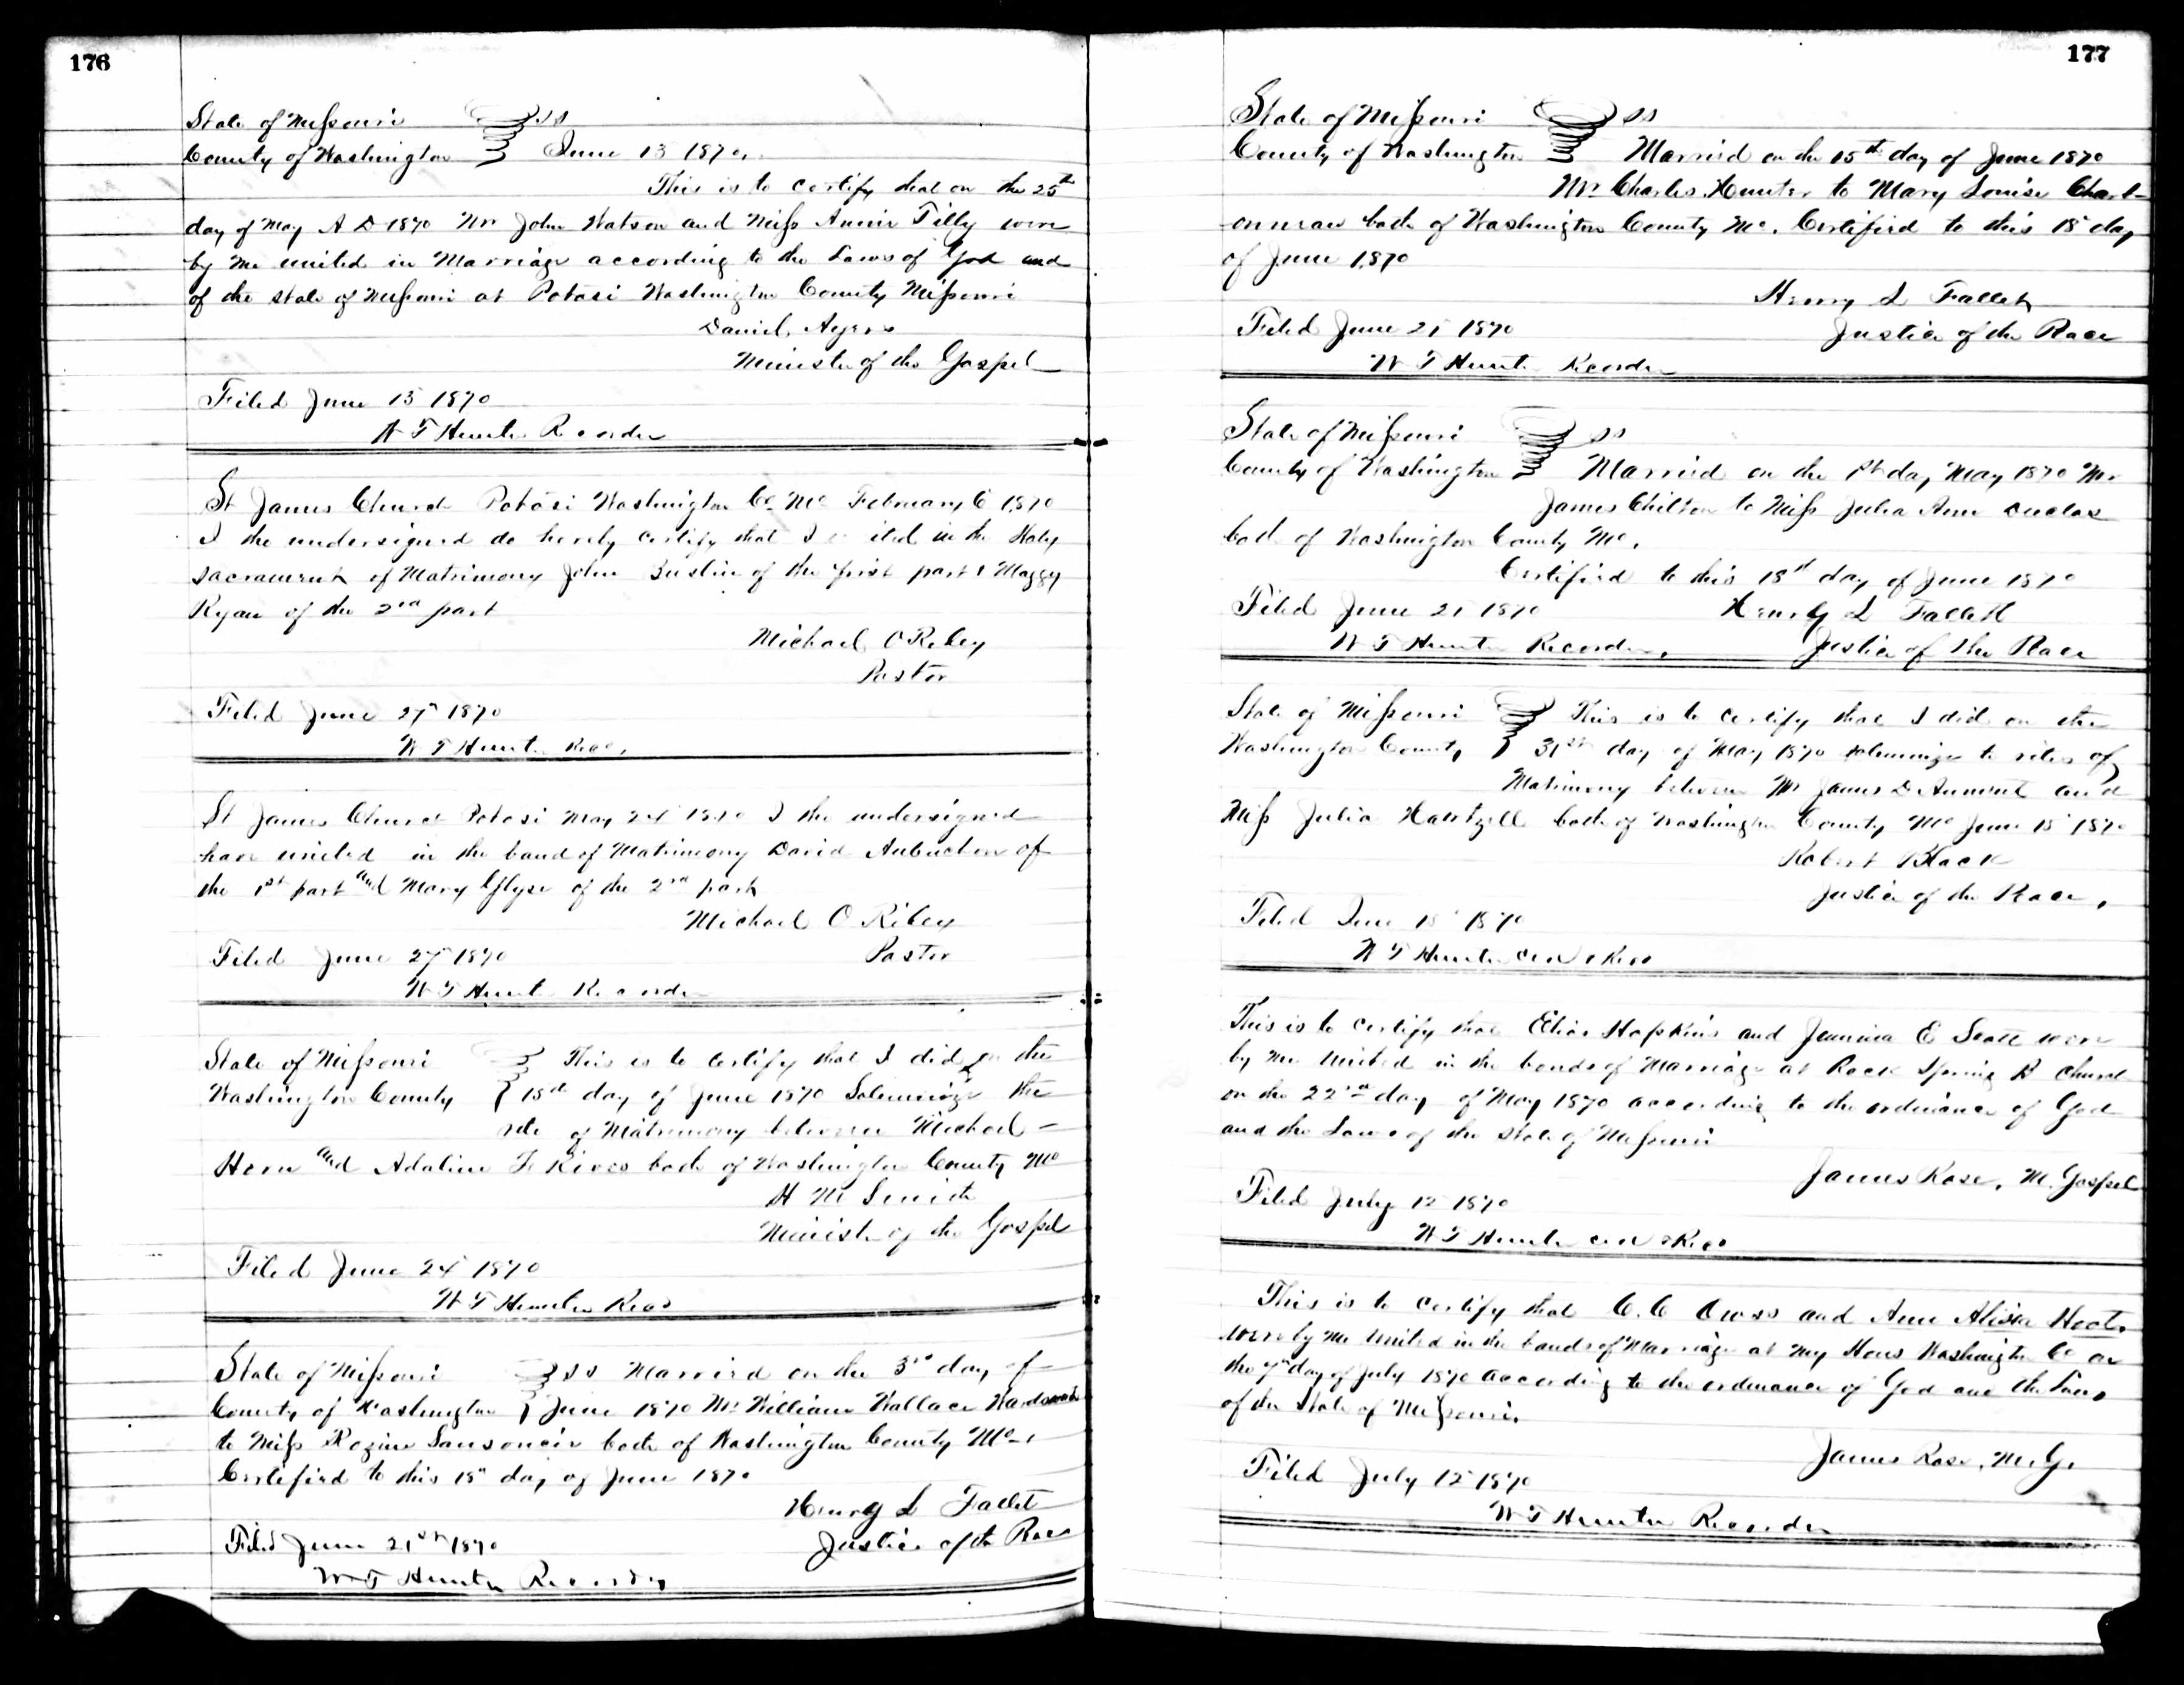 176
State of Missouri ss
County of Washington June 13 1870.
This is to certify that on the 25th
day of May A D 1870 Mr John Watson and Miss Annie Tilly were
by me united in Marriage according to the Laws of God and
of the state of Missouri at Potosi Washington County Missouri
Daniel Ayers
Minister of the Gospel
Filed June 13 1870
W T Hunter Recorder
St James Church Potosi Washington Co Mo February 6 1870
I the undersigned do hereby certify that I united in the Holy
sacrament of Matrimony John Bustin of the first part & Maggy
Ryan of the 2nd part
Michael O Riley
Pastor
Filed June 27th 1870
W T Hunter Reco.
St James Church Potosi May 24 1870 I the undersigned
have united in the band of Matrimony David Aubuchon of
the 1st part and Mary of the 2nd part
Michael O Riley
Filed June 27th 1870 Pastor
W T Hunter Recorder
State of Missouri This is to certify that I did on the
Washington County 15th day of June 1870 Solemnize the
rite of Matrimony between Michael
Horn and Adaline F Rives both of Washington County Mo
H M Smith
Minister of the Gospel
Filed June 24 1870
W T Hunter Reco
State of Missouri ss Married on the 3rd day of
County of Washington June 1870 Mr William Wallace
to Miss Rozine Sansoucie both of Washington County Mo.
Certified to this 18th day of June 1870
Henry L Fallet
Filed June 21st 1870 Justice of the Peace
W T Hunter Recorder
177
State of Missouri ss
County of Washington Married on the 15th day of June 1870
Mr Charles Hunter to Mary Louise
both of Washington County Mo. Certified to this 18 day
of June 1870
Henry L Fallett
Filed June 21 1870 Justice of the Peace
W T Hunter Recorder
State of Missouri ss
County of Washington Married on the 1st day May 1870 Mr
James Chilton to Miss Julia Ann Duclos
both of Washington County Mo.
Certified to this 18th day of June 1870
Filed June 21 1870 Henry L Fallett
W T Hunter Recorder. Justice of the Peace
State of Missouri This is to certify that I did on the
Washington County 31st day of May 1870 solemnize to rites of
Matrimony between Mr James D Aumont and
Miss Julia Hartzell both of Washington County Mo June 15 1870
Robert Black
Justice of the Peace,
Filed June 18 1870
W T Hunter Clk & Reco
This is to certify that Elias Hopkins and Jemima E Scott were
by me united in the bonds of Marriage at Rock Spring B Church
on the 22nd day of May 1870 according to the ordinance of God
and the Laws of the State of Missouri
James Rose, M. Gospel
Filed July 12 1870
W T Hunter Clk & Reco
This is to certify that C. C and Ann Alissa
were by me united in the bands of Marriage at my Hous Washington Co on
the 7th day of July 1870 according to the ordinance of God and the Laws
of the State of Missouri.
James Rose, M. G.
Filed July 12 1870
W T Hunter Recorder